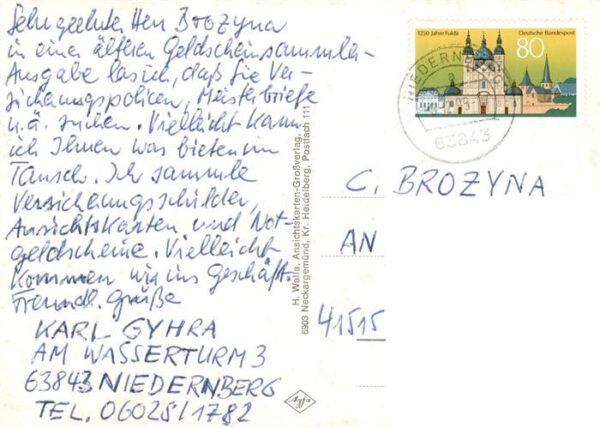 Sehr geehrter Herr Brozyna
in einer älteren Geldscheinsammler-
Ausgabe las ich, daß Sie Ver-
sicherungspolicen, Meisterbriefe
u.ä. suchen. Vielleicht kann
ich Ihnen was bieten im
Tausch. Ich sammle
Versicherungsschilder,
Ansichtskarten und Not-
geldscheine. Vielleicht
kommen wir ins Geschäft.
Freundl. Grüße
KARL GYHRA
AM WASSERTURM 3
63843 NIEDERNBERG
TEL. 06028/1782
H. Walla, Ansichtskarten-Großverlag,
6903 Neckargemünd, Kr. Heidelberg, Postfach 111
Agfa
1250 Jahre Fulda
Deutsche Bundespost
80
NIEDERNBERG
63843
C. BROZYNA
AN
41515